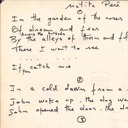 Matita Perè
①
In the garden of the roses
Of dream and fear
By the alleys of thorn and
There I want to see
If you catch me
②
In a cold dawn from a
John woke up, the dog was
John opened the door, the
③